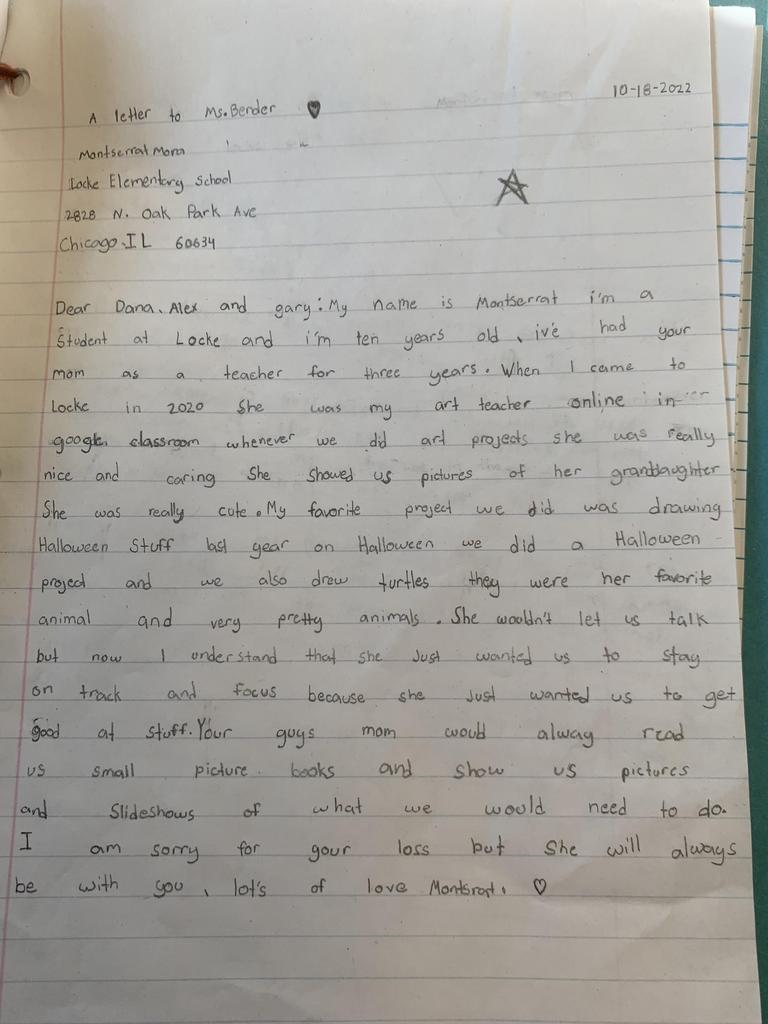 10-18-2022
A letter to Ms. Bender ♥
Montserrat Mora
Locke Elementery School
2828 N. Oak Park Ave
Chicago, IL 60634
Dear Dana, Alex and gary: My name is Montserrat i'm a
Student at Locke and i'm ten years old, ive had your
mom as a teacher for three years. When I came to
Locke in 2020 She was my art teacher online in
google classroom whenever we did art projects she was really
nice and caring She showed us pictures of her granddaughter
She was really cute. My favorite project we did was drawing
Halloween Stuff last year on Halloween we did a Halloween
project and we also drew turtles they were her favorite
animal and very pretty animals. She wouldn't let us talk
but now I understand that she Just wanted us to stay
on track and focus because she Just wanted us to get
good at stuff. Your guys mom would alway read
us small picture books and show us pictures
and Slideshows of what we would need to do.
I am sorry for your loss but She will always
be with you, lot's of love Montsrat. ♡